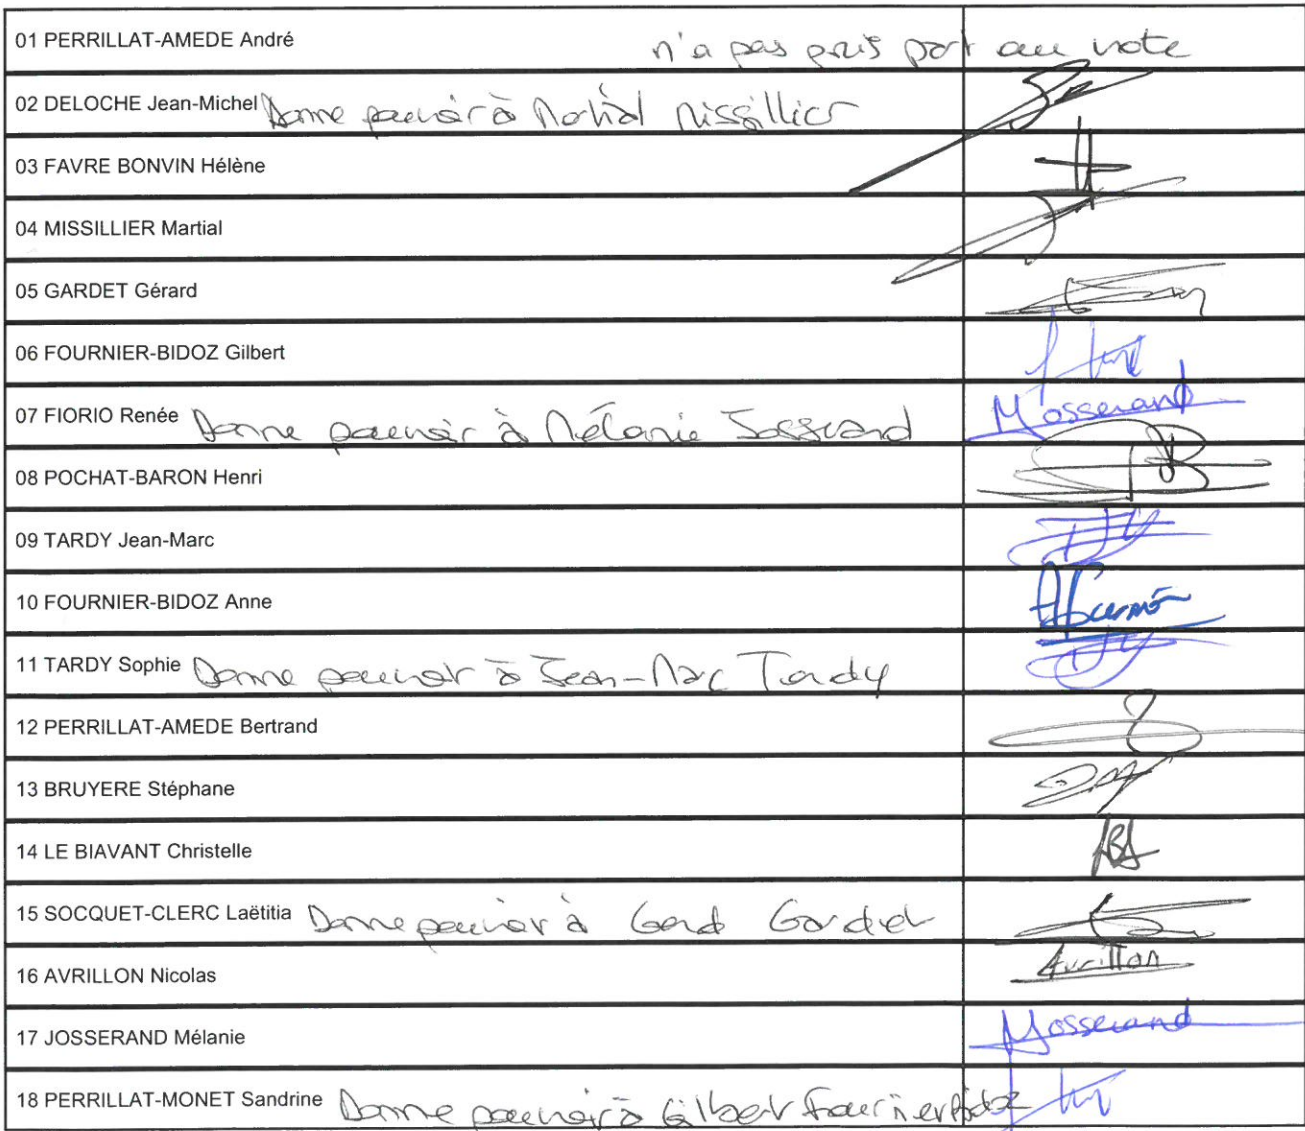 01 PERRILLAT-AMEDE André n'a pas pris part au vote
02 DELOCHE Jean-Michel Donne pouvoir à Martial Missillier
03 FAVRE BONVIN Hélène
04 MISSILLIER Martial
05 GARDET Gérard
06 FOURNIER-BIDOZ Gilbert
07 FIORIO Renée Donne pouvoir à Mélanie Josserand MJosserand
08 POCHAT-BARON Henri
09 TARDY Jean-Marc
10 FOURNIER-BIDOZ Anne
11 TARDY Sophie Donne pouvoir à Jean-Marc Tardy
12 PERRILLAT-AMEDE Bertrand
13 BRUYERE Stéphane
14 LE BIAVANT Christelle
15 SOCQUET-CLERC Laëtitia Donne pouvoir à Gérard Gardet
16 AVRILLON Nicolas Avrillon
17 JOSSERAND Mélanie MJosserand
18 PERRILLAT-MONET Sandrine Donne pouvoir à Gilbert Fournier Bidoz